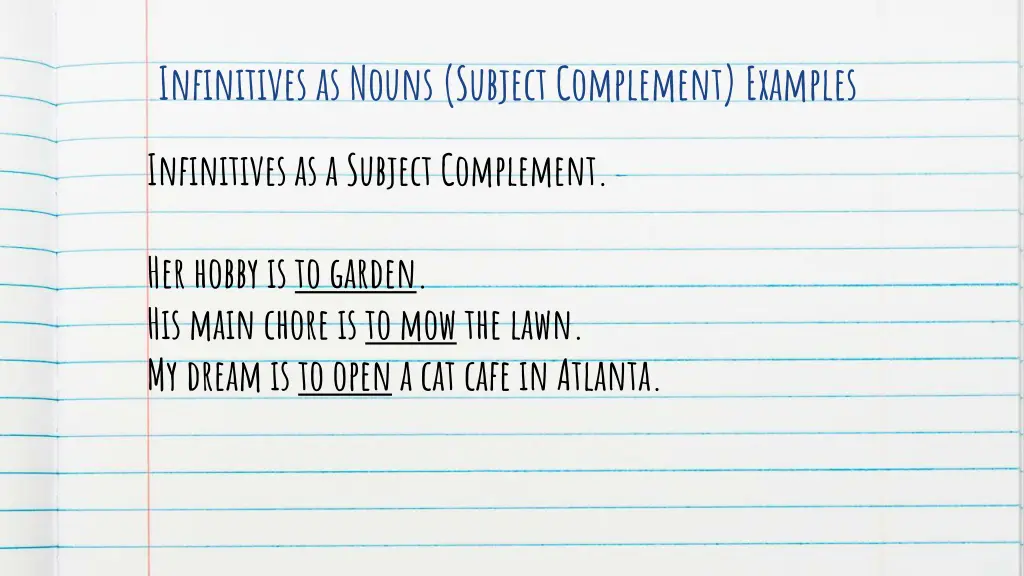 Infinitives as Nouns (Subject Complement) Examples
Infinitives as a Subject Complement.
Her hobby is to garden.
His main chore is to mow the lawn.
My dream is to open a cat cafe in Atlanta.